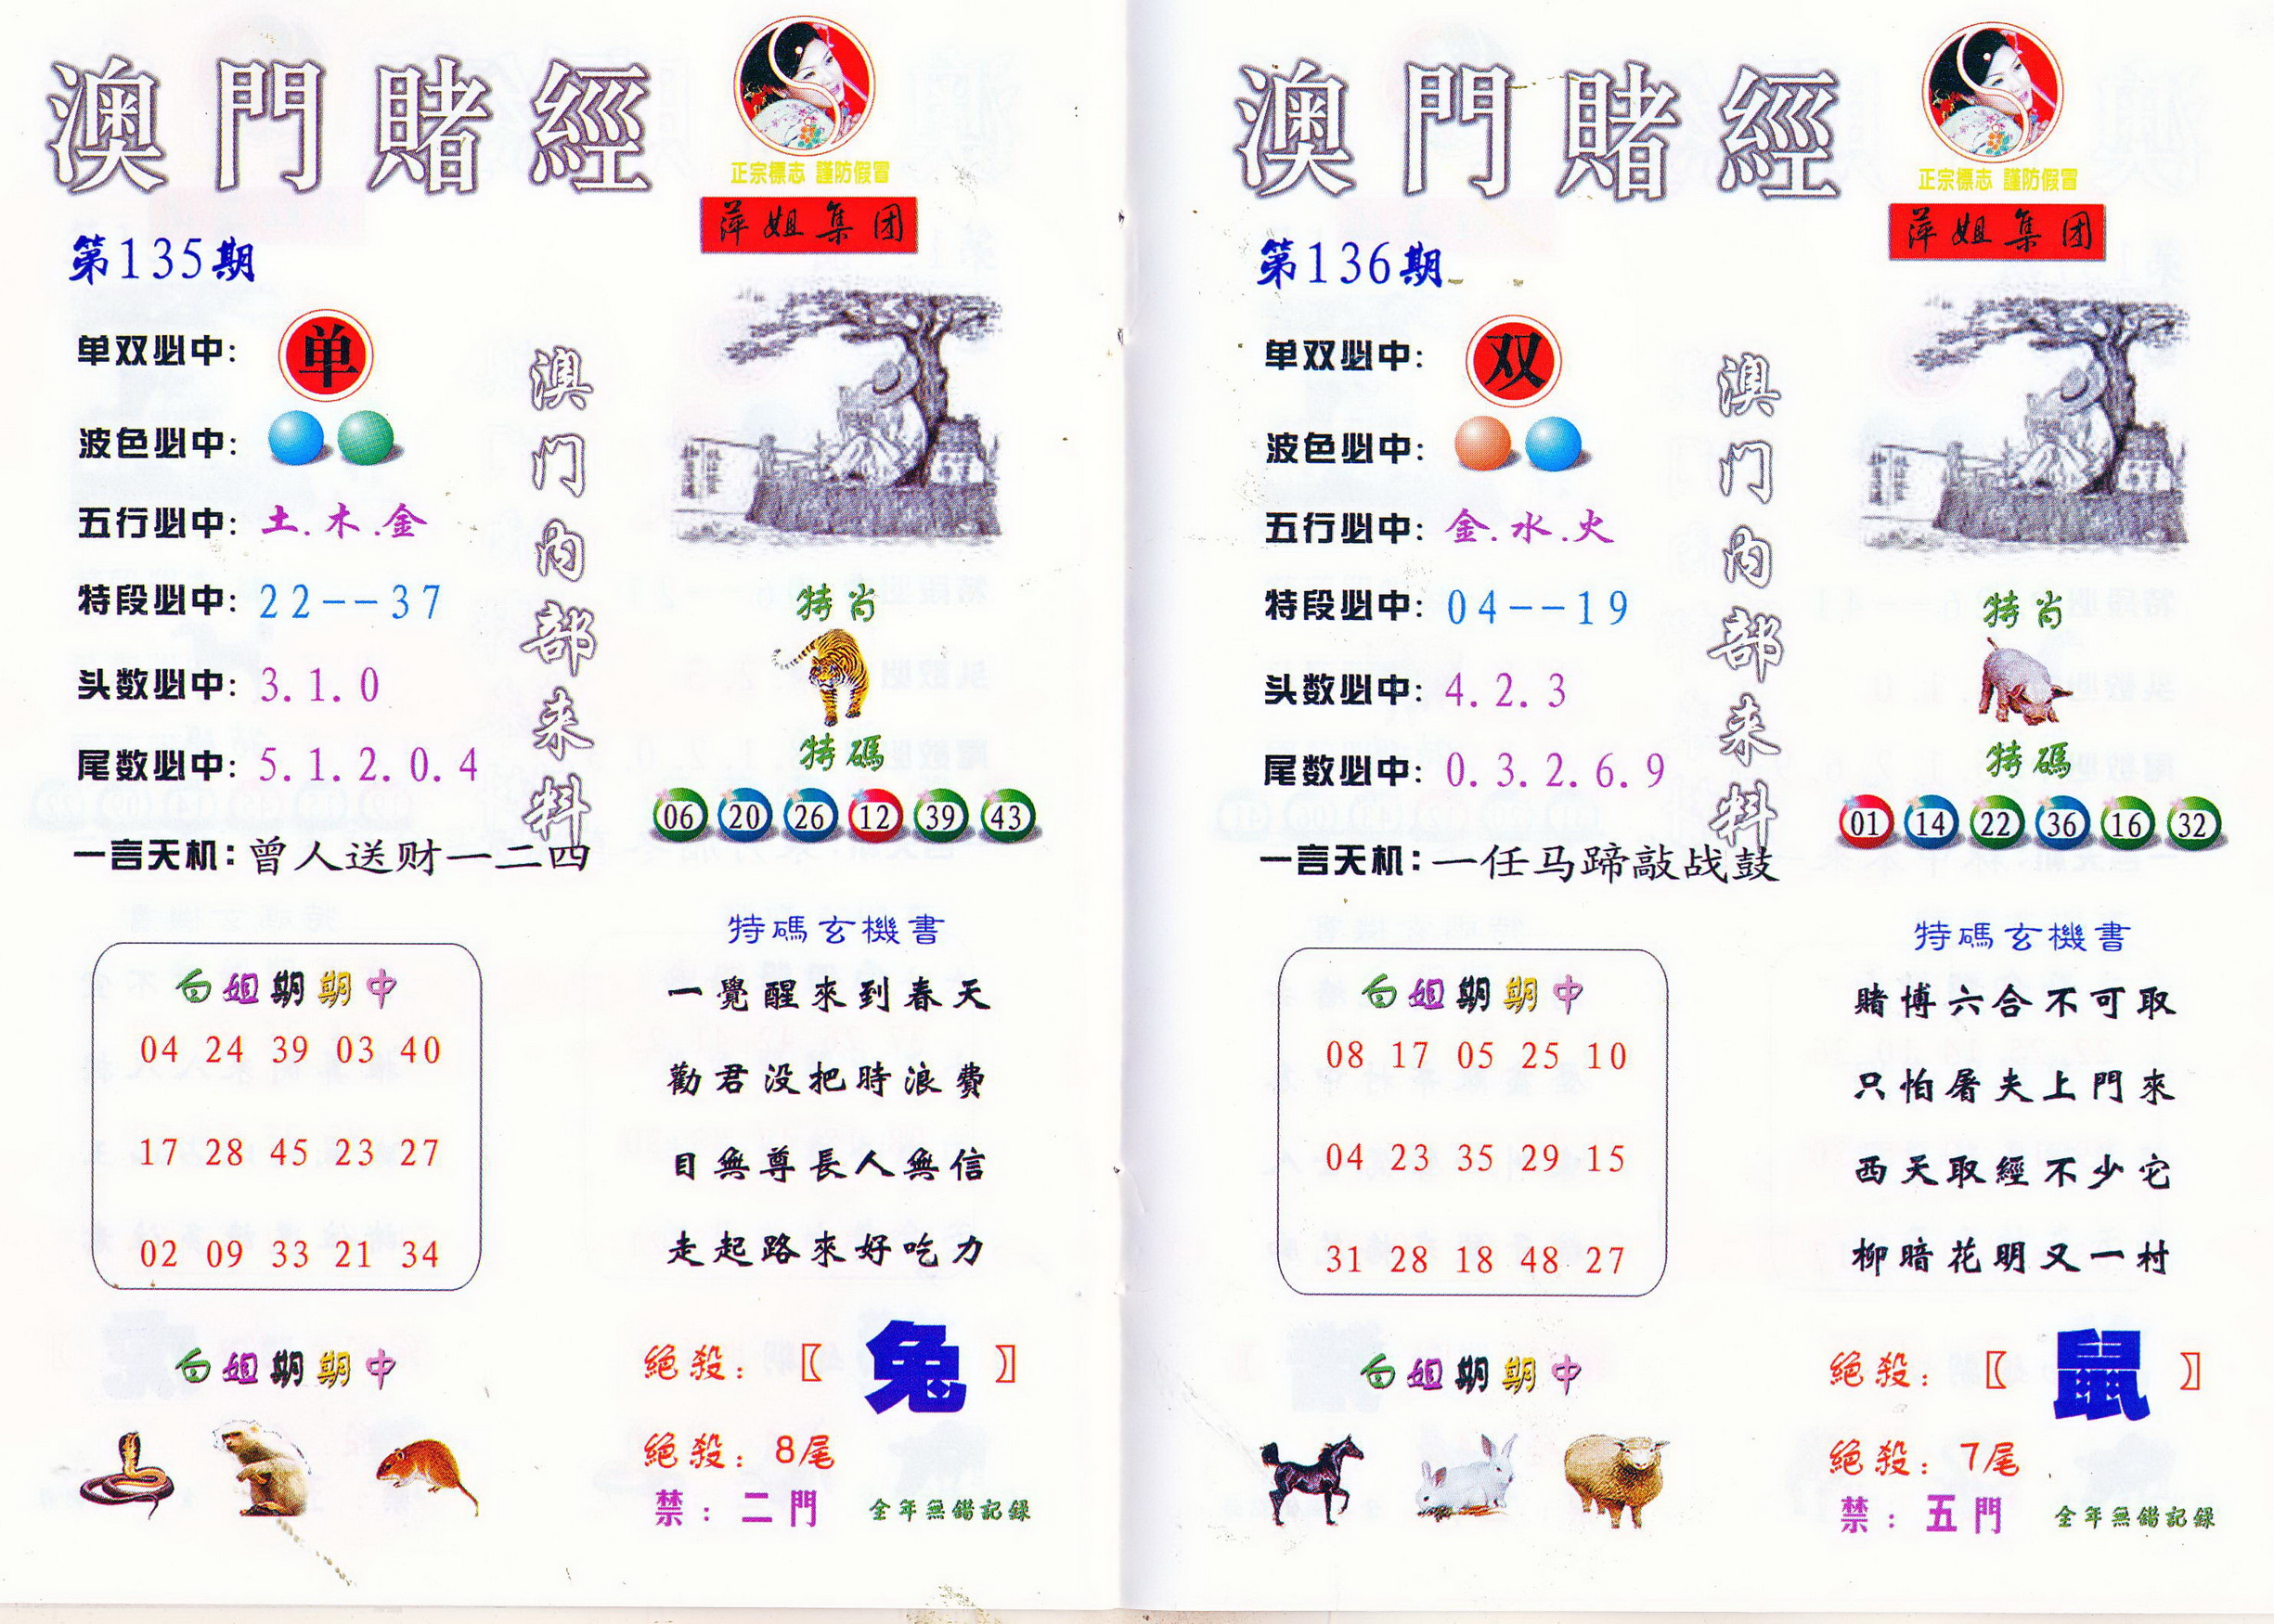 澳門賭經
正宗標志 謹防假冒
萍姐集团
第135期
单双必中: 单
波色必中:
五行必中: 土.木.金
特段必中: 22--37
头数必中: 3.1.0
尾数必中: 5.1.2.0.4
一言天机: 曾人送财一二四
澳门内部来料
特肖
特碼
06 20 26 12 39 43
白姐期期中
04 24 39 03 40
17 28 45 23 27
02 09 33 21 34
特碼玄機書
一覺醒來到春天
勸君没把時浪費
目無尊長人無信
走起路來好吃力
白姐期期中
絕殺:【兔】
絕殺: 8尾
禁: 二門
全年無錯記錄
澳門賭經
正宗標志 謹防假冒
萍姐集团
第136期
单双必中: 双
波色必中:
五行必中: 金.水.火
特段必中: 04--19
头数必中: 4.2.3
尾数必中: 0.3.2.6.9
一言天机: 一任马蹄敲战鼓
澳门内部来料
特肖
特碼
01 14 22 36 16 32
白姐期期中
08 17 05 25 10
04 23 35 29 15
31 28 18 48 27
特碼玄機書
賭博六合不可取
只怕屠夫上門來
西天取經不少它
柳暗花明又一村
白姐期期中
絕殺:【鼠】
絕殺: 7尾
禁: 五門
全年無錯記錄